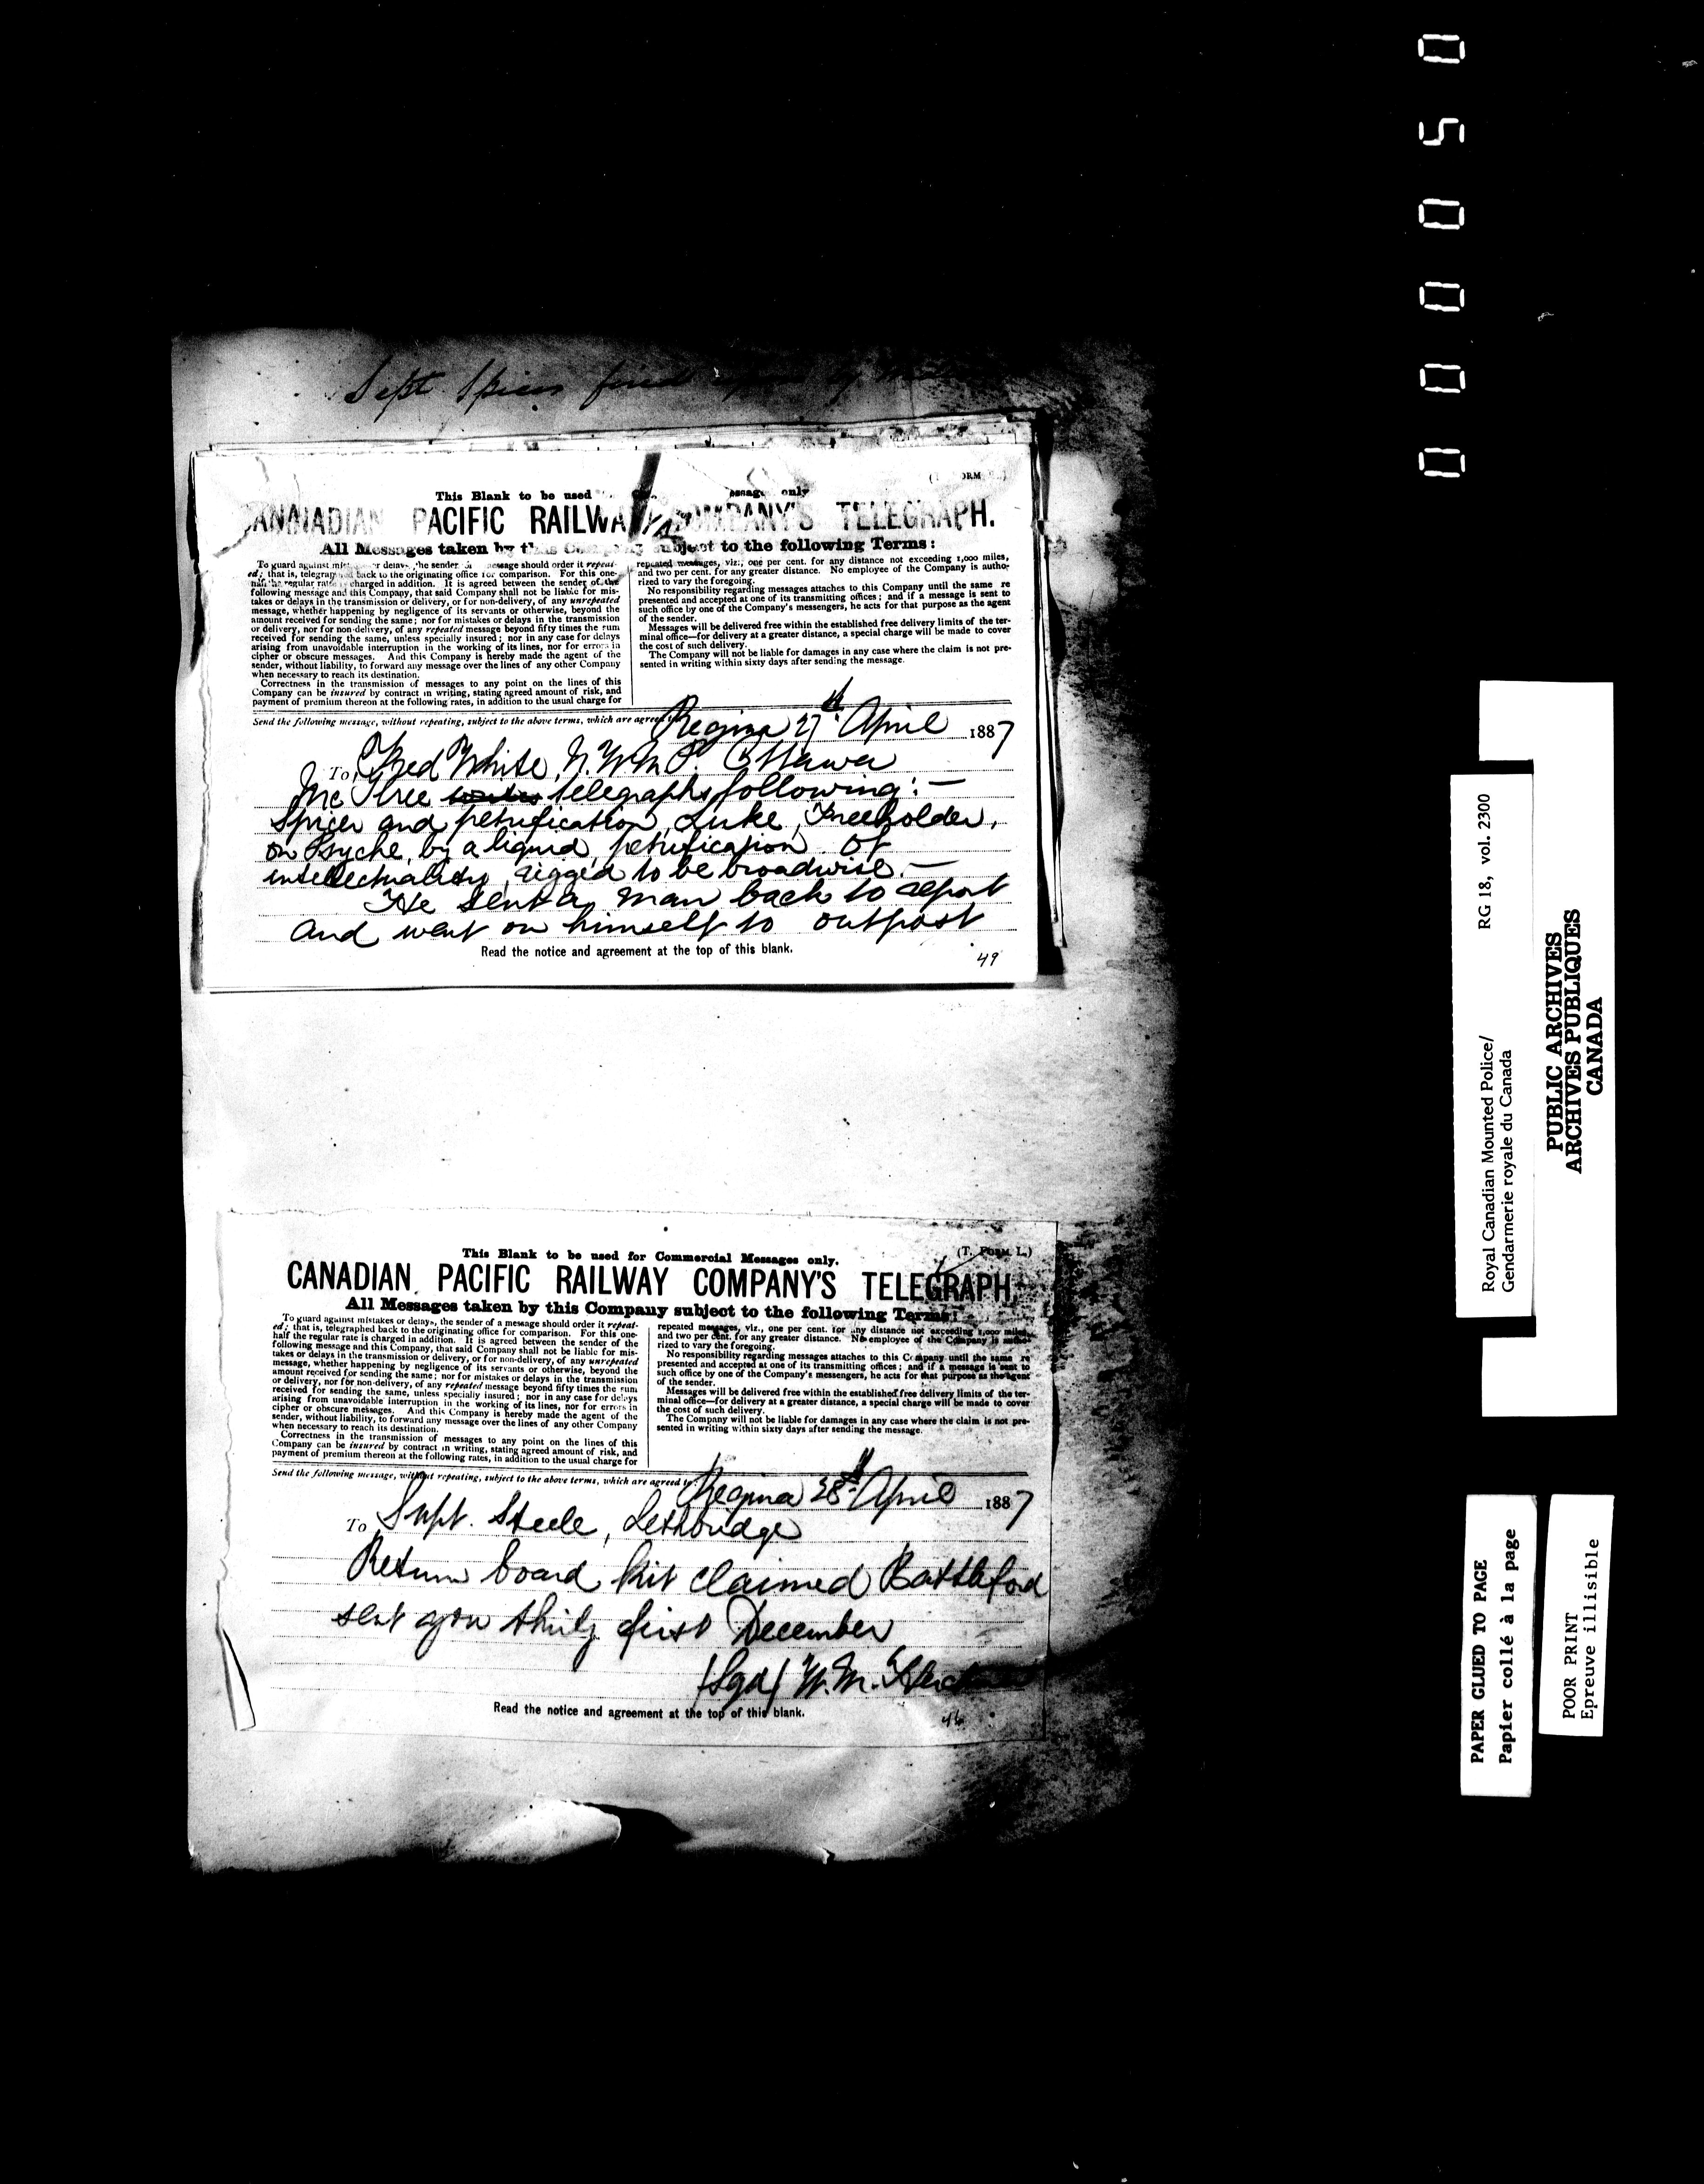 000050
Sept. Spicer fired upon by
(T. FORM L.)
This Blank to be used only
CANADIAN PACIFIC RAILWAY COMPANY'S TELEGRAPH.
All Messages taken by this Company subject to the following Terms:
To guard against mistakes or delays, the sender of a message should order it repeat-
ed; that is, telegraphed back to the originating office for comparison. For this one-
half the regular rate is charged in addition. It is agreed between the sender of the
following message and this Company, that said Company shall not be liable for mis-
takes or delays in the transmission or delivery, or for non-delivery, of any unrepeated
message, whether happening by negligence of its servants or otherwise, beyond the
amount received for sending the same; nor for mistakes or delays in the transmission
or delivery, nor for non-delivery, of any repeated message beyond fifty times the sum
received for sending the same, unless specially insured; nor in any case for delays
arising from unavoidable interruption in the working of its lines, nor for errors in
cipher or obscure messages. And this Company is hereby made the agent of the
sender, without liability, to forward any message over the lines of any other Company
when necessary to reach its destination.
Correctness in the transmission of messages to any point on the lines of this
Company can be insured by contract in writing, stating agreed amount of risk, and
payment of premium thereon at the following rates, in addition to the usual charge for
repeated messages, viz., one per cent. for any distance not exceeding 1,000 miles,
and two per cent. for any greater distance. No employee of the Company is autho-
rized to vary the foregoing.
No responsibility regarding messages attaches to this Company until the same re
presented and accepted at one of its transmitting offices; and if a message is sent to
such office by one of the Company's messengers, he acts for that purpose as the agent
of the sender.
Messages will be delivered free within the established free delivery limits of the ter-
minal office—for delivery at a greater distance, a special charge will be made to cover
the cost of such delivery.
The Company will not be liable for damages in any case where the claim is not pre-
sented in writing within sixty days after sending the message.
Send the following message, without repeating, subject to the above terms, which are agreed to.
Regina 27th April 1887
To Fred White, N.W.M.P. Ottawa
McIllree telegraphs following:—
Spicer and petrification, Luke, Freeholder,
on Psyche, by a liquid, petrification of
intellectuality, rigged to be broadwise.—
He sent a man back to report
and went on himself to outpost
Read the notice and agreement at the top of this blank.
49
(T. FORM L.)
This Blank to be used for Commercial Messages only.
CANADIAN PACIFIC RAILWAY COMPANY'S TELEGRAPH.
All Messages taken by this Company subject to the following Terms:
To guard against mistakes or delays, the sender of a message should order it repeat-
ed; that is, telegraphed back to the originating office for comparison. For this one-
half the regular rate is charged in addition. It is agreed between the sender of the
following message and this Company, that said Company shall not be liable for mis-
takes or delays in the transmission or delivery, or for non-delivery, of any unrepeated
message, whether happening by negligence of its servants or otherwise, beyond the
amount received for sending the same; nor for mistakes or delays in the transmission
or delivery, nor for non-delivery, of any repeated message beyond fifty times the sum
received for sending the same, unless specially insured; nor in any case for delays
arising from unavoidable interruption in the working of its lines, nor for errors in
cipher or obscure messages. And this Company is hereby made the agent of the
sender, without liability, to forward any message over the lines of any other Company
when necessary to reach its destination.
Correctness in the transmission of messages to any point on the lines of this
Company can be insured by contract in writing, stating agreed amount of risk, and
payment of premium thereon at the following rates, in addition to the usual charge for
repeated messages, viz., one per cent. for any distance not exceeding 1,000 miles,
and two per cent. for any greater distance. No employee of the Company is autho-
rized to vary the foregoing.
No responsibility regarding messages attaches to this Company until the same re
presented and accepted at one of its transmitting offices; and if a message is sent to
such office by one of the Company's messengers, he acts for that purpose as the agent
of the sender.
Messages will be delivered free within the established free delivery limits of the ter-
minal office—for delivery at a greater distance, a special charge will be made to cover
the cost of such delivery.
The Company will not be liable for damages in any case where the claim is not pre-
sented in writing within sixty days after sending the message.
Send the following message, without repeating, subject to the above terms, which are agreed to.
Regina 28th April 1887
To Supt. Steele, Lethbridge
Return board kit claimed Battleford
sent you thirty first December
(Sgd) W.M.
Read the notice and agreement at the top of this blank.
46
Royal Canadian Mounted Police/ RG 18, vol. 2300
Gendarmerie royale du Canada
PUBLIC ARCHIVES
ARCHIVES PUBLIQUES
CANADA
PAPER GLUED TO PAGE
Papier collé à la page
POOR PRINT
Epreuve illisible